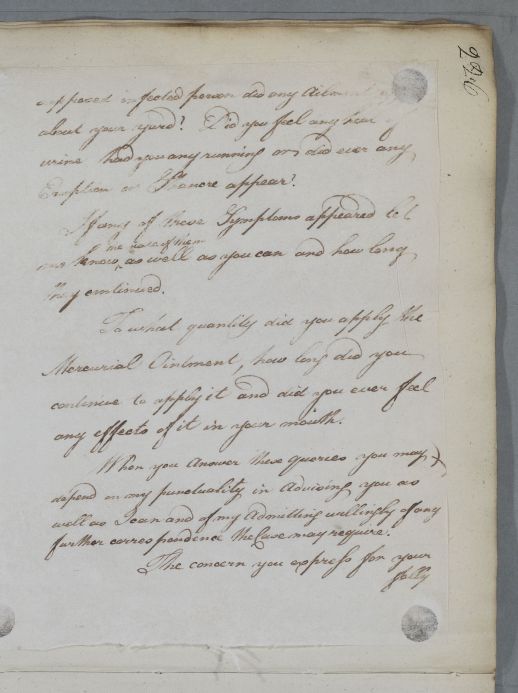 226
opposed infected person did any Ailment
about your yard? Did you feel any heat of
urine had you any running or did ever any
Eruption or Shancre appear?
If any of these Symptoms appeared let
me the nature of them
know as well as you can and how long
they continued.
To what quantity did you apply the
Mercurial Ointment, how long did you
continue to apply it and did you ever feel
any effects of it in your mouth.
When you Answer these queries you may
depend on my punctuality in Advising you as
well as I can and of my Admitting willingly of any
further correspondence the Case may require.
The concern you express for your
folly